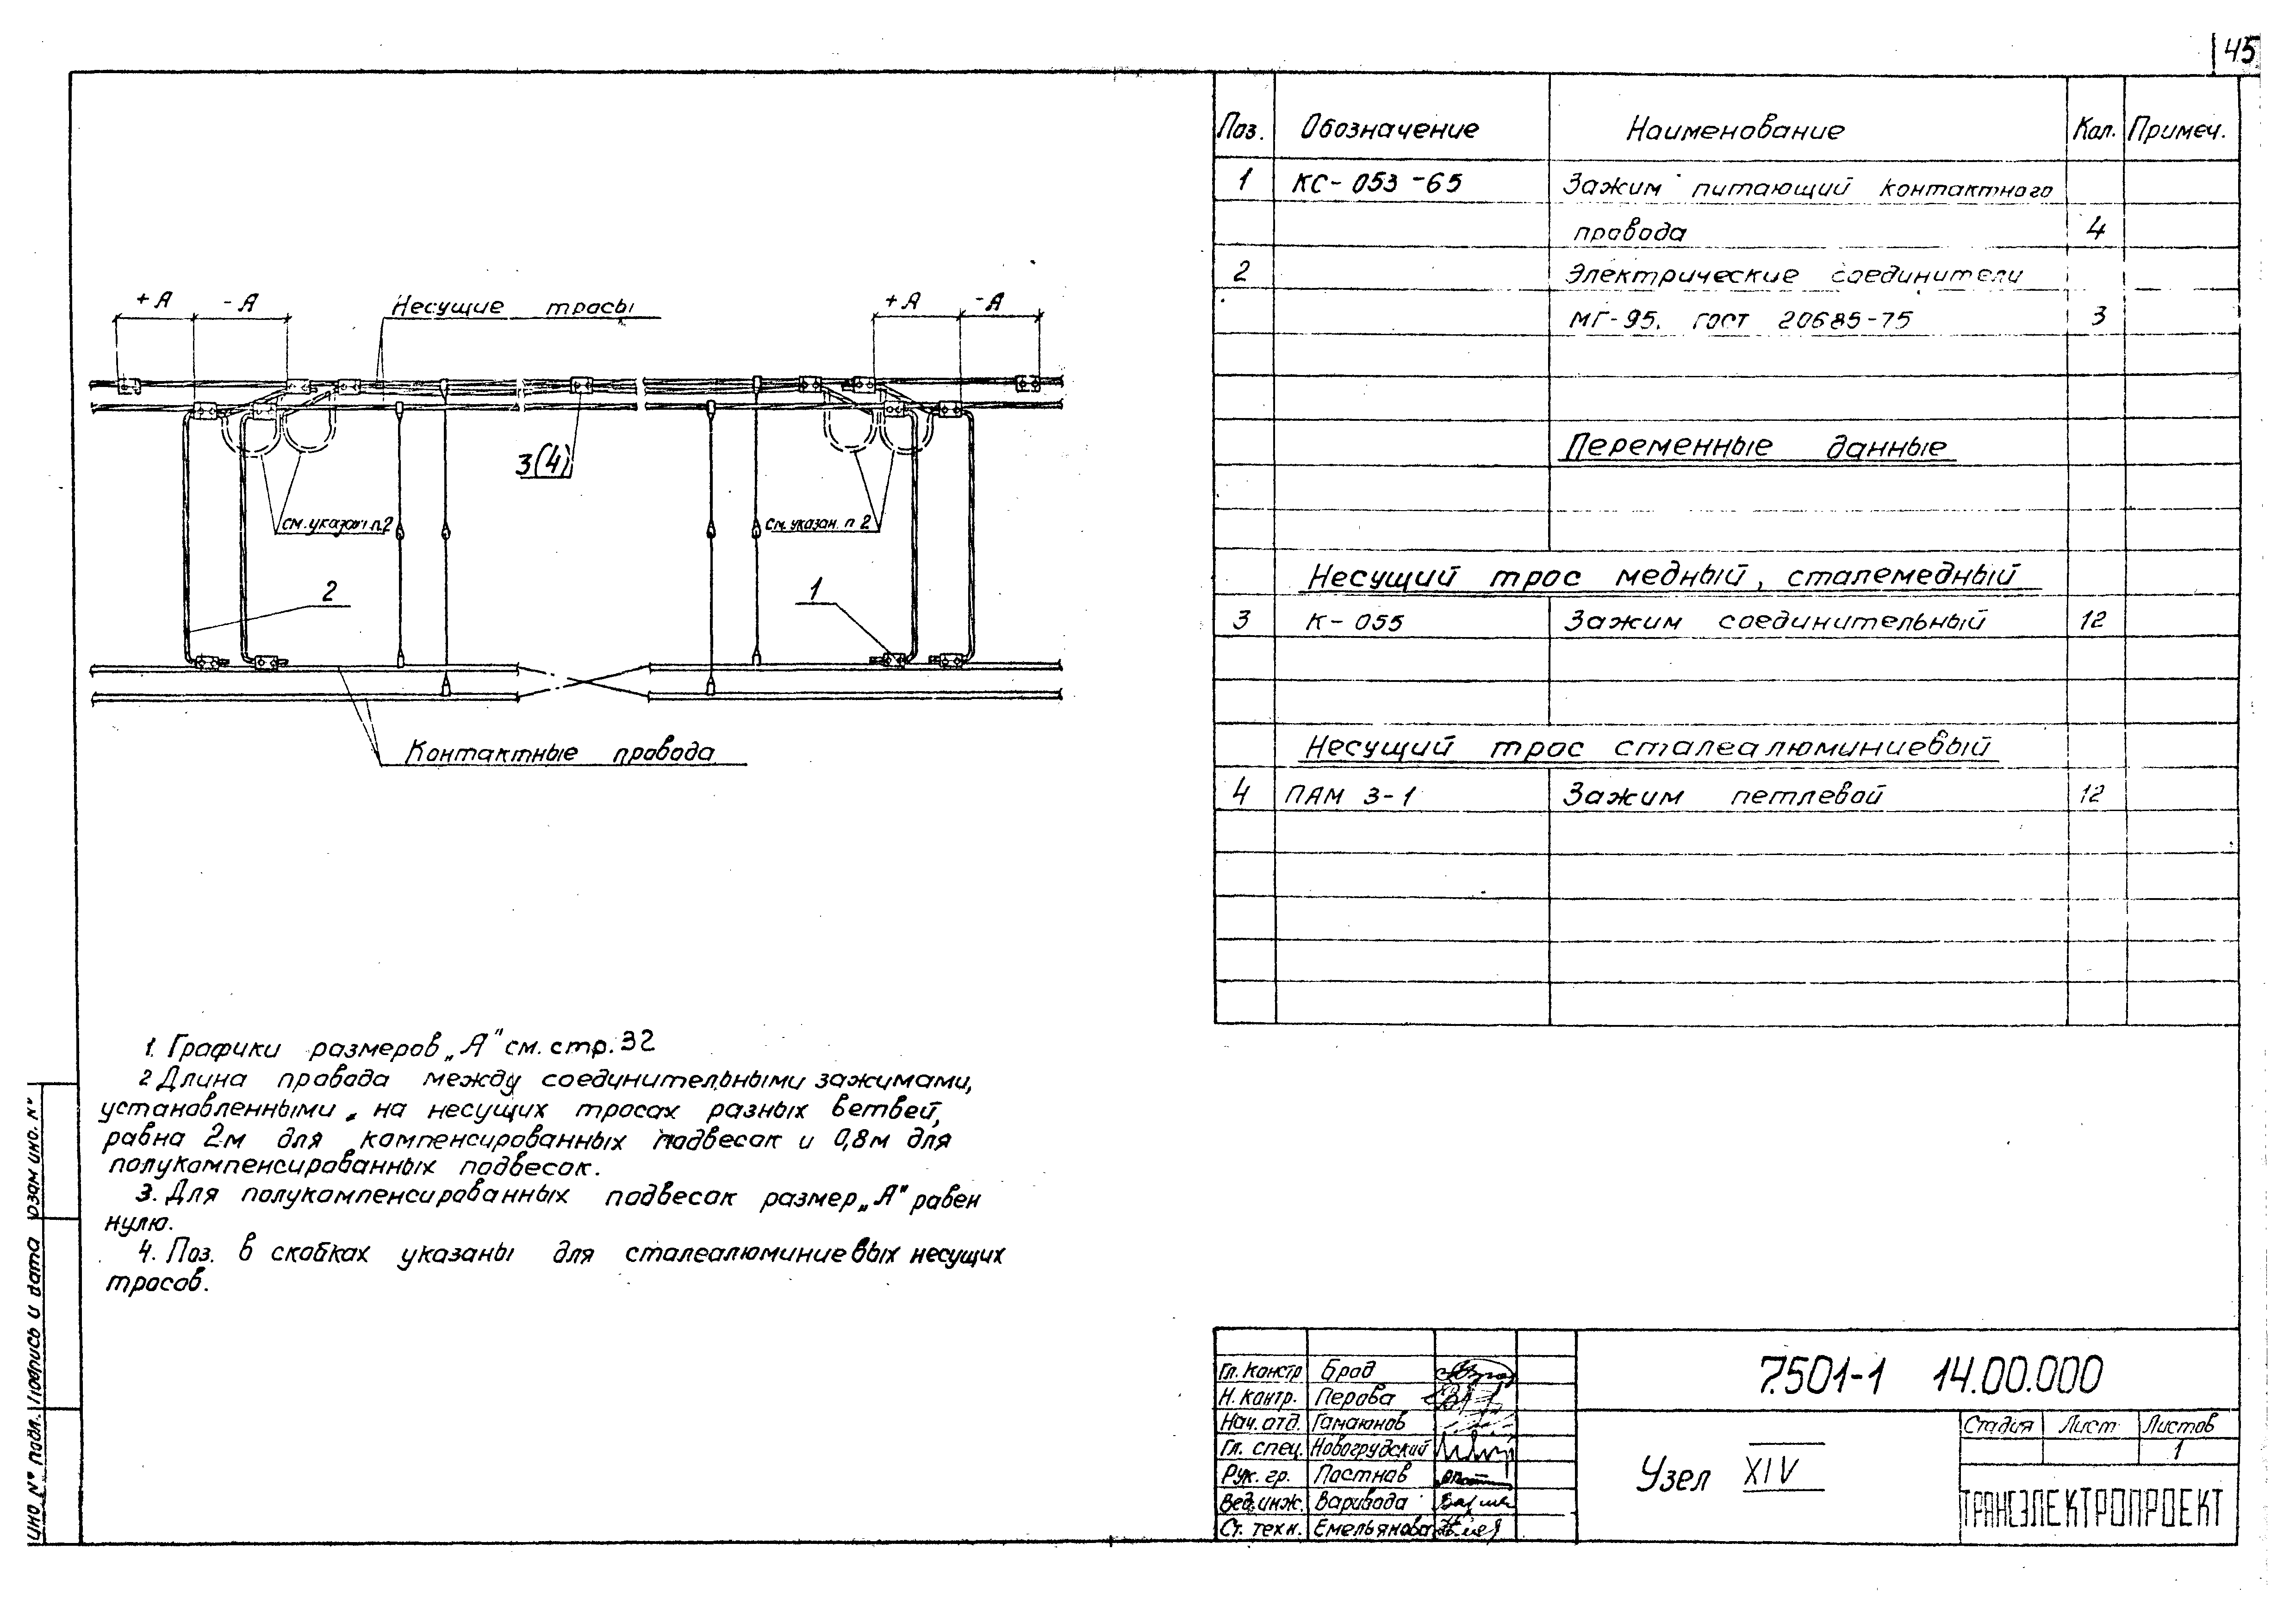 45
+А -А Несущие тросы +А -А
3(4)
см. указан п.2
см. указан. п 2
2
1
Контактные провода
1. Графики размеров „А" см. стр. 32
2 Длина провода между соединительными зажимами,
установленными на несущих тросах разных ветвей,
равна 2м для компенсированных подвесок и 0,8м для
полукомпенсированных подвесок.
3. Для полукомпенсированных подвесок размер „А" равен
нулю.
4. Поз. в скобках указаны для сталеалюминиевых несущих
тросов.
Поз. Обозначение Наименование Кол. Примеч.
1 КС-053-65 Зажим питающий контактного
провода 4
2 Электрические соединители
МГ-95. ГОСТ 20685-75 3
Переменные данные
Несущий трос медный, сталемедный
3 К-055 Зажим соединительный 12
Несущий трос сталеалюминиевый
4 ПАМ 3-1 Зажим петлевой 12
Гл. констр Брод
Н. контр. Перова
Нач. отд. Гамаюнов
Гл. спец. Новогрудский
Рук. гр. Постнов
Вед. инж. Варивода
Ст. техн. Емельянова
7.501-1 14.00.000
Узел XIV
Стадия Лист Листов
1
ТРАНСЭЛЕКТРОПРОЕКТ
инв. № подл. Подпись и дата взам инв. №